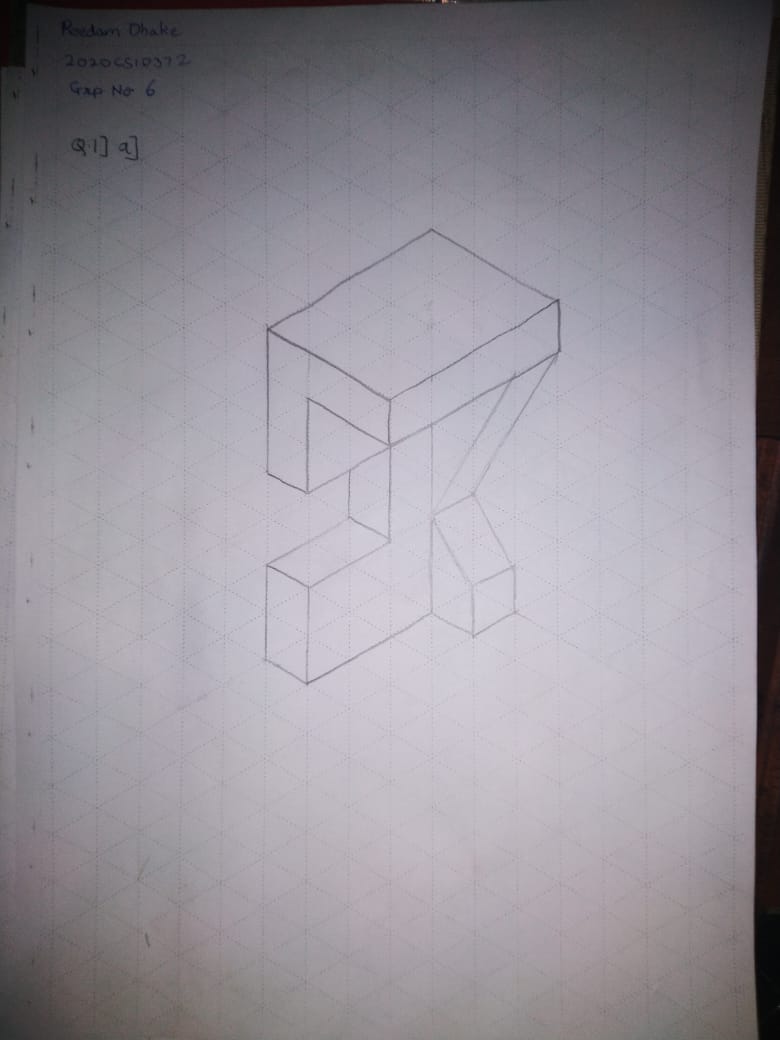 Poedam Dhake
2020CS10372
Grp No 6
Q.1] a]